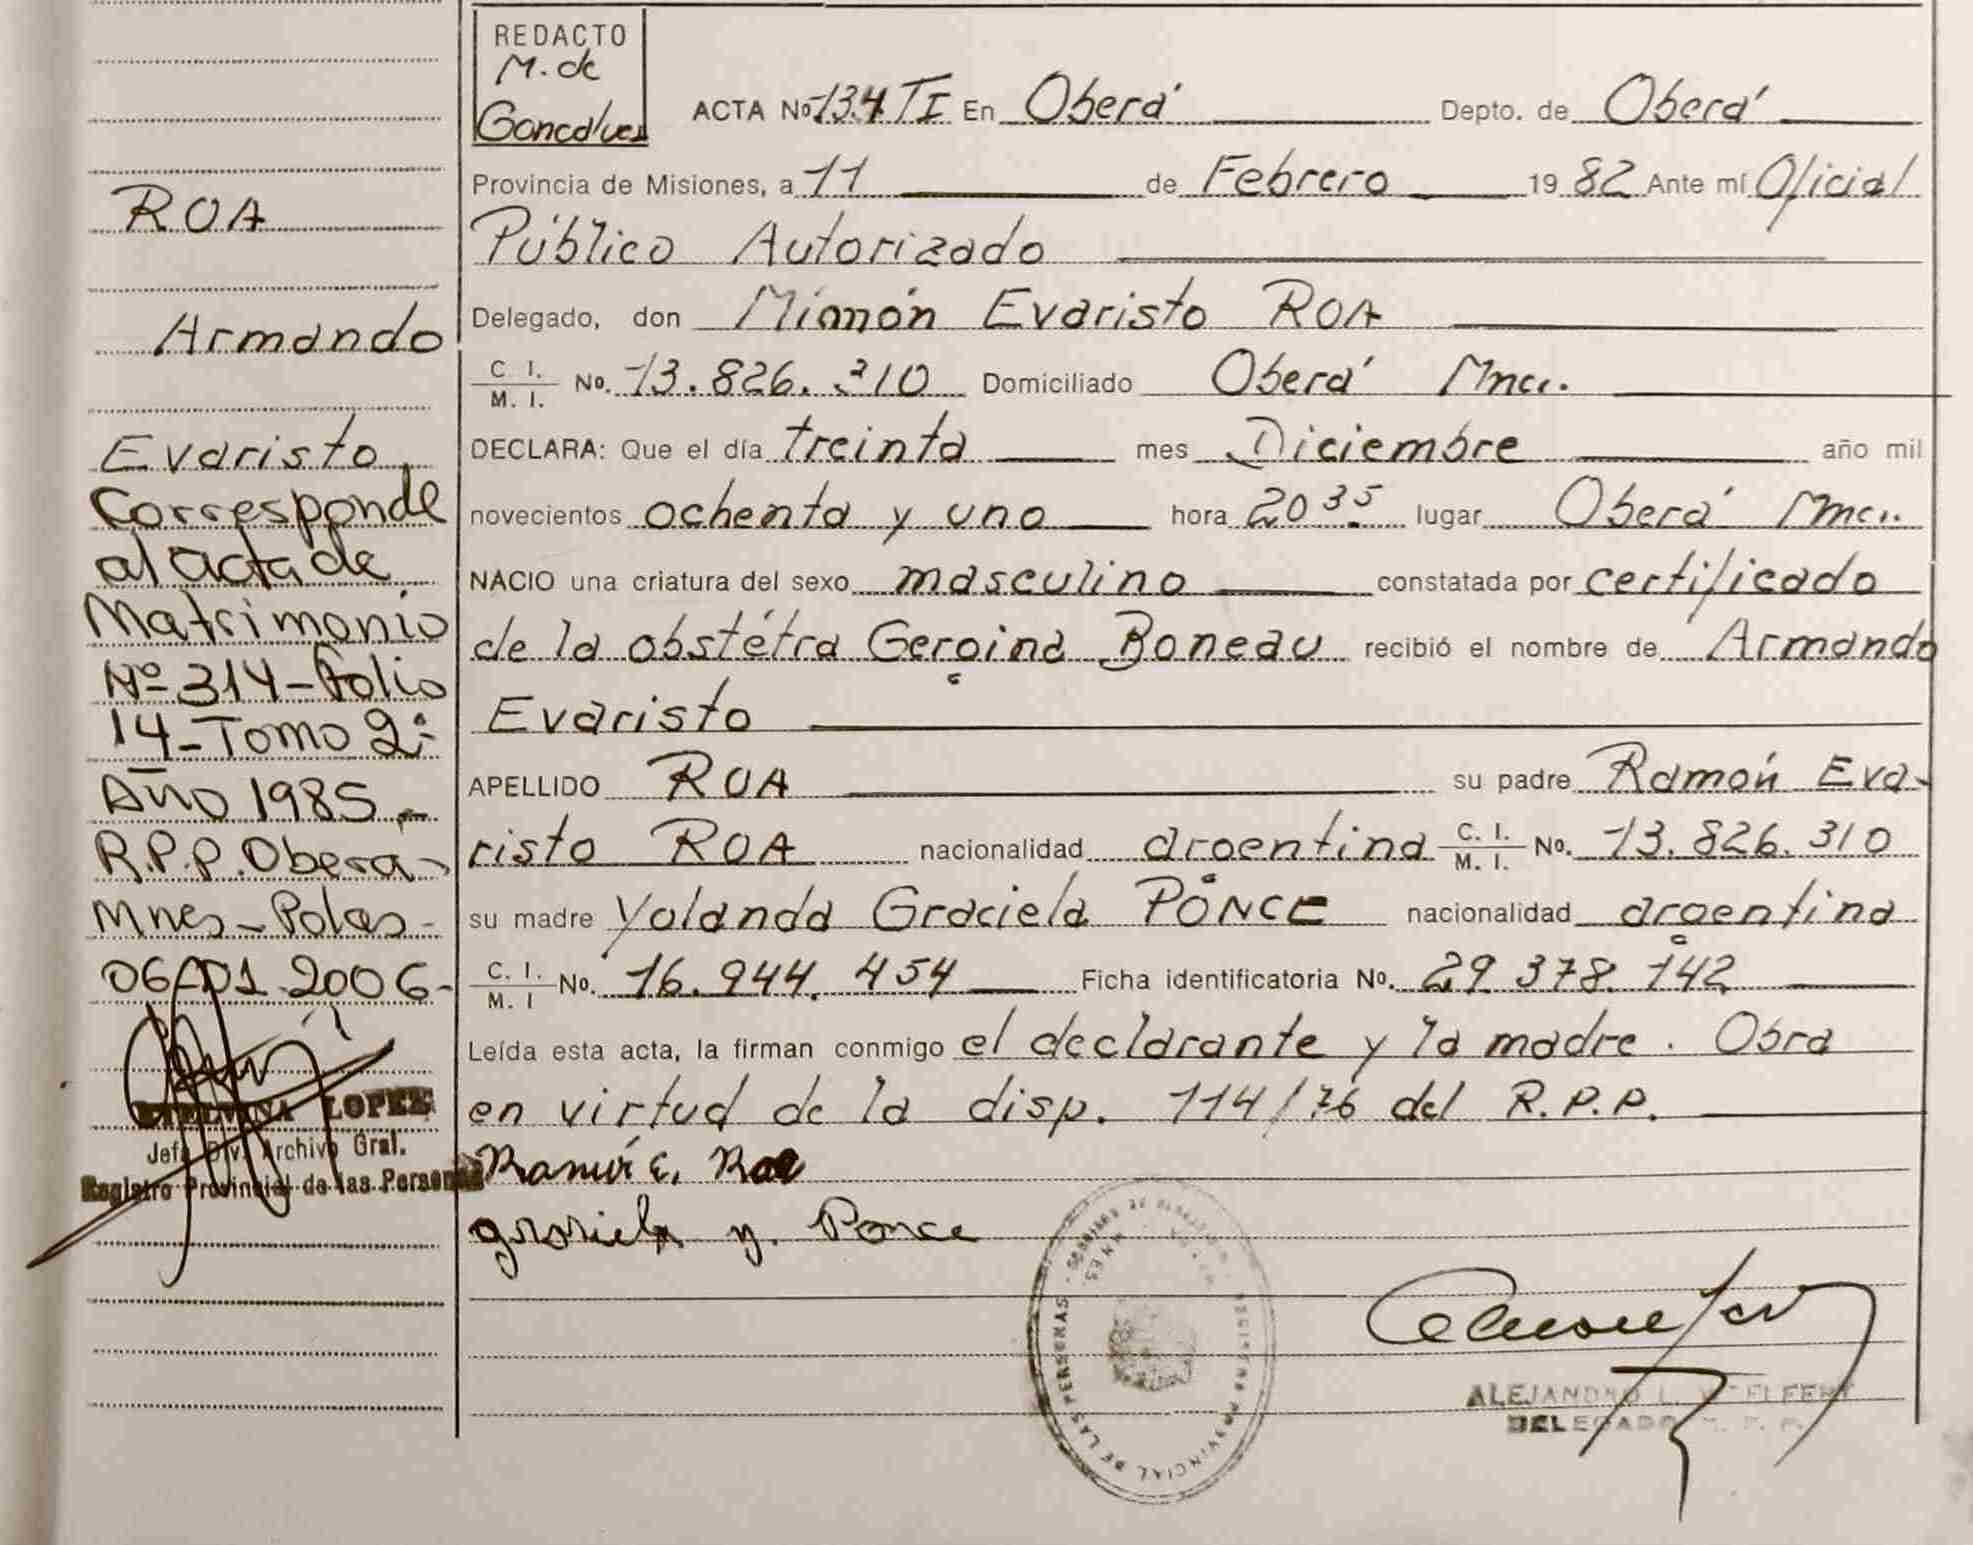 REDACTO
M. de
Goncalves
ACTA No 134 TI En Oberá Depto. de Oberá
Provincia de Misiones, a 11 de Febrero 19 82 Ante mí Oficial
Público Autorizado
Delegado, don Evaristo ROA
C. I. / M. I. No. 13.826.310 Domiciliado Oberá Mnes.
DECLARA: Que el día treinta mes Diciembre año mil
novecientos ochenta y uno hora 20 35 lugar Oberá Mnes.
NACIO una criatura del sexo masculino constatada por certificado
de la obstétra Gergina Boneau recibió el nombre de Armando
Evaristo
APELLIDO ROA su padre Ramón Eva-
risto ROA nacionalidad argentina C. I. / M. I. No. 13.826.310
su madre Yolanda Graciela PONCE nacionalidad argentina
C. I. / M. I No. 16.944.454 Ficha identificatoria No. 29.378.142
Leída esta acta, la firman conmigo el declarante y la madre. Obra
en virtud de la disp. 114/76 del R.P.P.
Ramón E. Roa
graciela y. Ponce
ROA
Armando
Evaristo
Corresponde
al acta de
Matrimonio
Nº 314-Folio
14-Tomo 2º
Año 1985-
R.P.P. Obera-
Mnes-Polas-
06-01-2006-
ETELVINA LOPEZ
Jefa Div. Archivo Gral.
Registro Provincial de las Personas
REGISTRO PROVINCIAL DE LAS PERSONAS
MNES
ALEJANDRO L.
DELEGADO R. P. P.